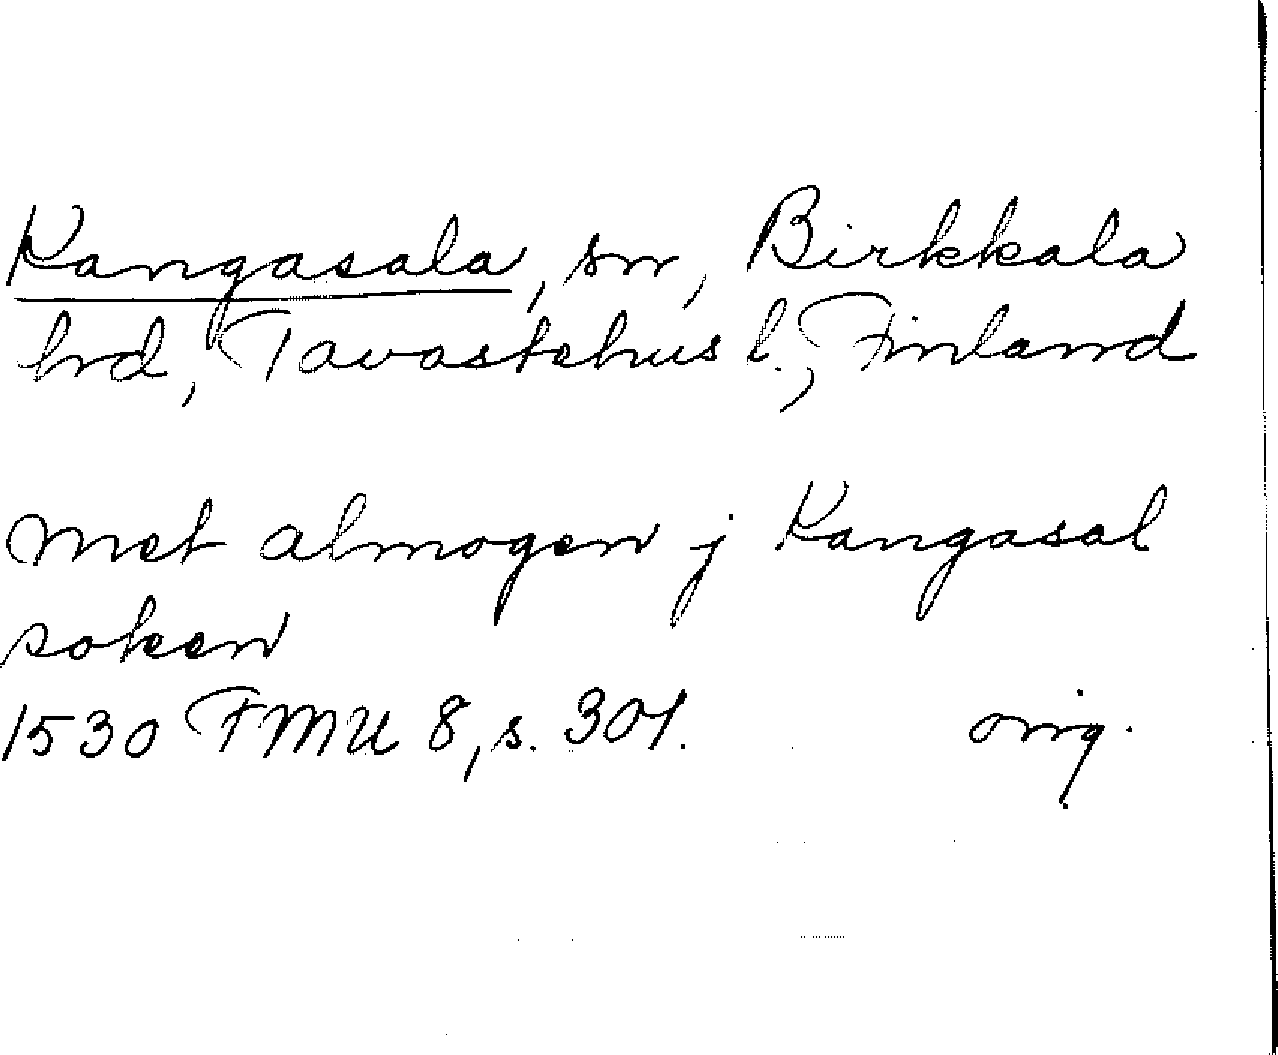 Kangasala, sn, Birkkala
hd, Tavastehus l., Finland
met almogen j Kangasal
soken
1530 FMU 8, s. 301. orig.